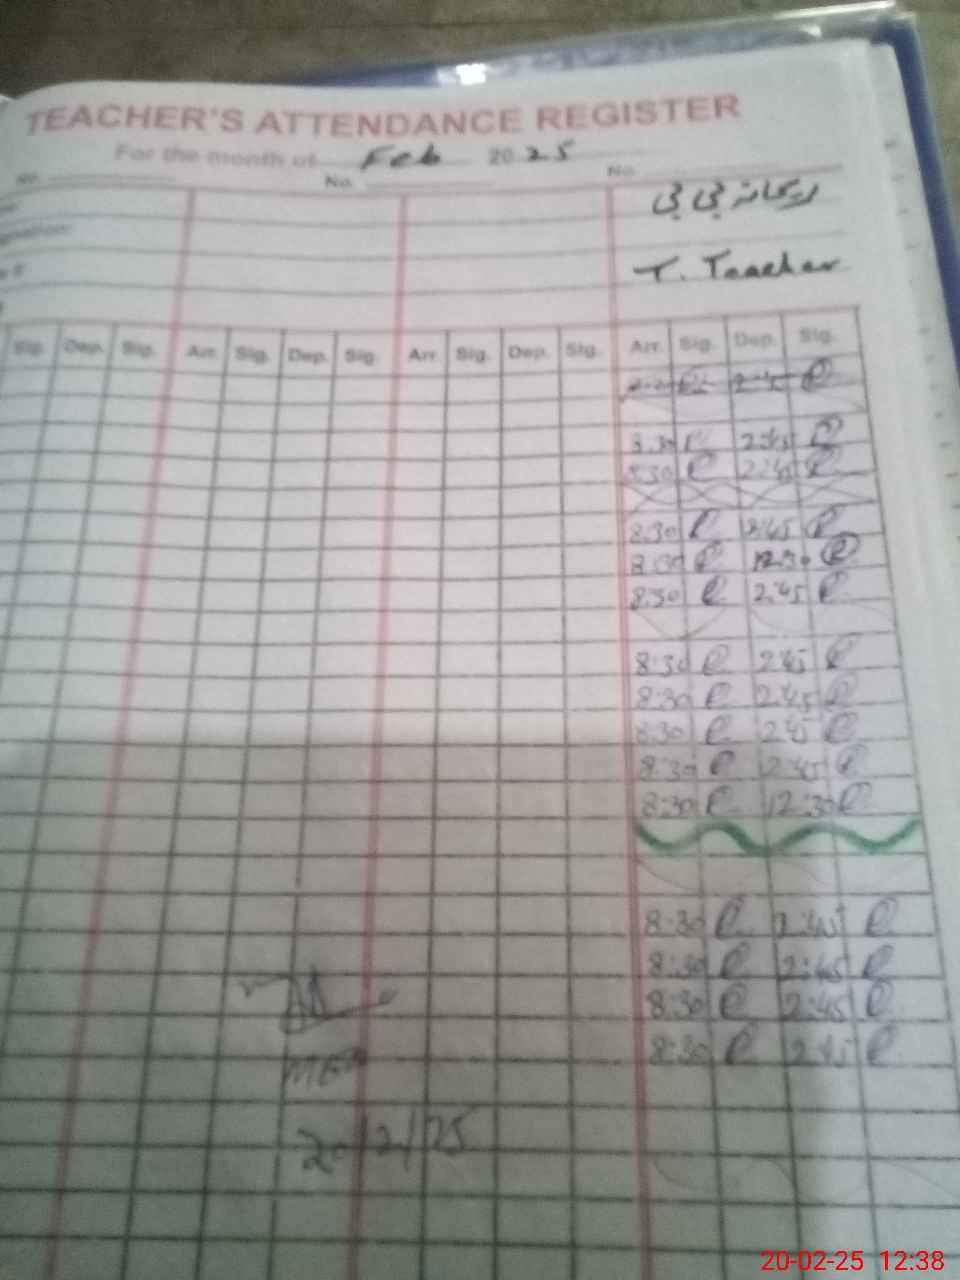 TEACHER'S ATTENDANCE REGISTER
For the month of Feb 2025
No. No. No.
ریحانہ بی بی
T. Teacher
Sig. Dep. Sig. Arr. Sig. Dep. Sig. Arr. Sig. Dep. Sig. Arr. Sig. Dep. Sig.
2:45
8:30 2:45
8:30 2:45
8:30 2:45
8:30 12:30
8:30 2:45
8:30 2:45
8:30 2:45
8:30 2:45
8:30 2:45
8:30 12:30
8:30 2:45
8:30 2:45
8:30 2:45
8:30 2:45
20/2/25
20-02-25 12:38